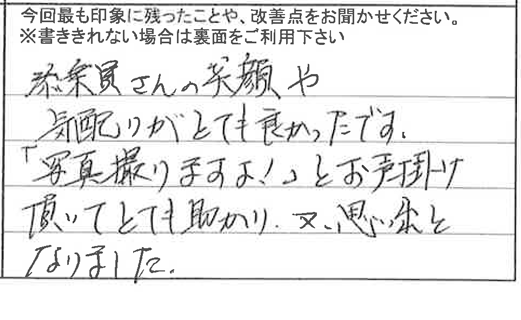 今回最も印象に残ったことや、改善点をお聞かせください。
※書ききれない場合は裏面をご利用下さい
添乗員さんの笑顔や
気配りがとても良かったです。
「写真撮りますよ!」とお声掛け
頂いてとても助かり、又、思い出と
なりました。